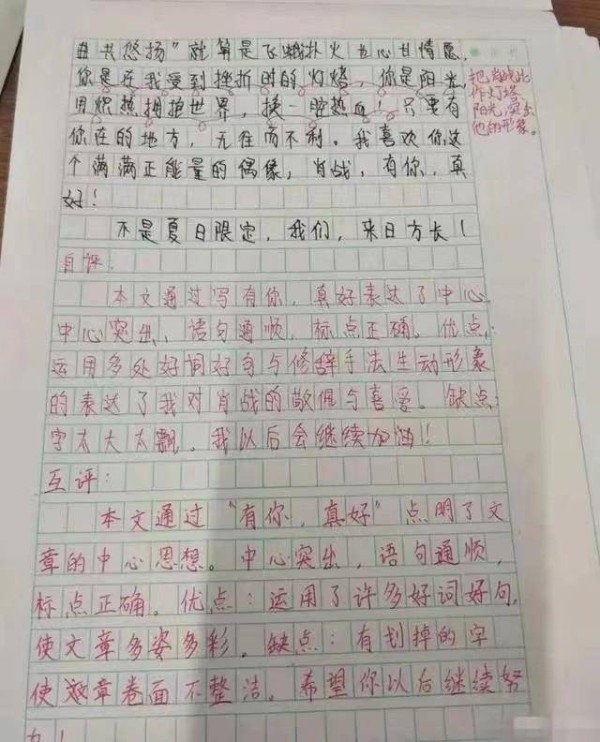 曲共悠扬"就算是飞蛾扑火也心甘情愿。
你是在我受到挫折时的灯塔,你是阳光,
用炽热拥抱世界,换一腔热血!只要有
你在的地方,无往而不利。我喜欢你这
个满满正能量的偶像,肖战,有你,真
好!
不是夏日限定,我们,来日方长!
把肖战比
作灯塔
阳光,突出
他的形象。
自评:
本文通过写有你,真好表达了中心,
中心突出,语句通顺,标点正确。优点:
运用多处好词好句与修辞手法生动形象
的表达了我对肖战的敬佩与喜爱。缺点:
字太大太飘,我以后会继续加油!
互评:
本文通过"有你,真好"点明了文
章的中心思想。中心突出,语句通顺,
标点正确。优点:运用了许多好词好句,
使文章多姿多彩。缺点:有划掉的字
使文章卷面不整洁。希望你以后继续努
力!